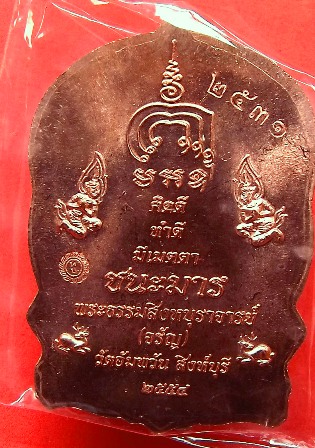 ๒๕๓๑
คิดดี
ทำดี
มีเมตตา
ชนะมาร
พระธรรมสิงหบุราจารย์
(จรัญ)
วัดอัมพวัน สิงห์บุรี
๒๕๕๔